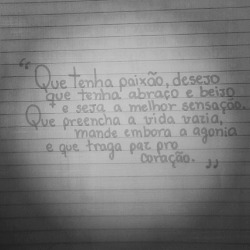 “Que tenha paixão, desejo
que tenha abraço e beijo
e seja a melhor sensação.
Que preencha a vida vazia,
mande embora a agonia
e que traga paz pro
coração.”